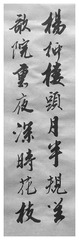 楊柳樓頭月半規笙
歌院裏夜深時花枝